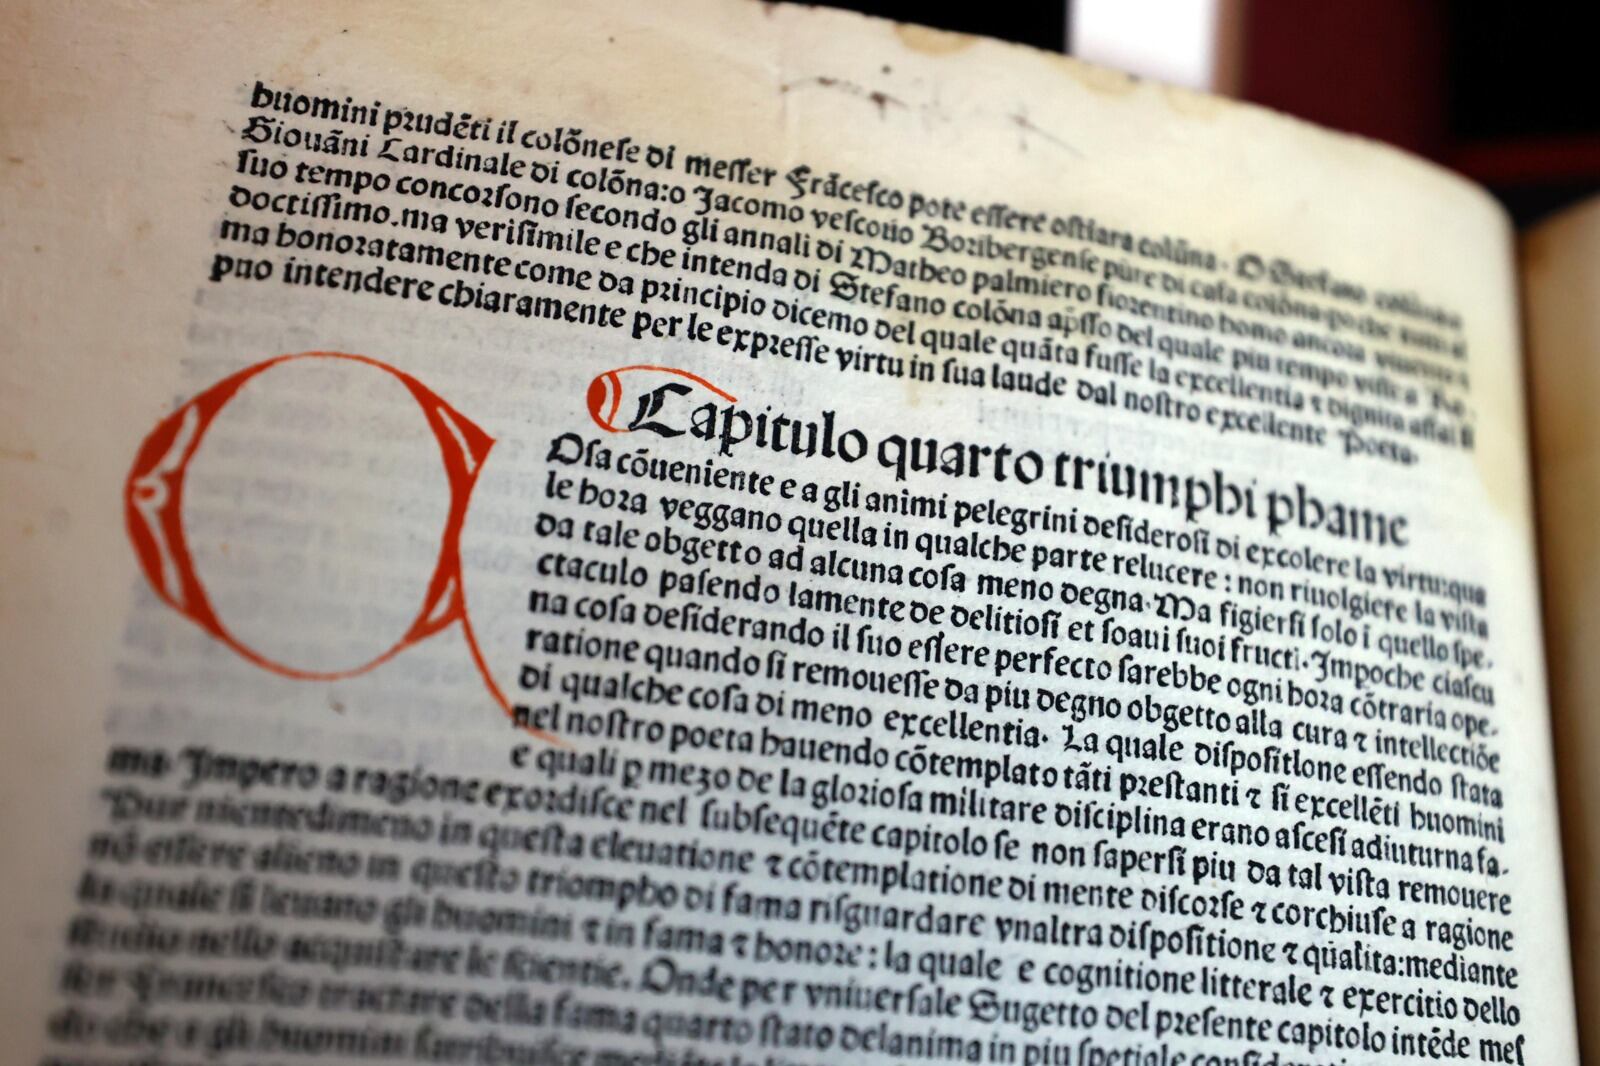 huomini prudẽti il colõnese di messer Frãcesco pote essere ostiara colũna. O Stefano colũna o
Giouãni Cardinale di colõna:o Jacomo vescouo Bonibergense pure di casa colõna.po che tutti al
suo tempo concorsono secondo gli annali di Matheo palmiero fiorentino homo ancora viuente &
doctissimo.ma verisimile e che intenda di Stefano colõna ap̃sso del quale piu tempo visse a Ro.
ma honoratamente come da principio dicemo del quale quãta fusse la excellentia ⁊ dignita assai si
puo intendere chiaramente per le expresse virtu in sua laude dal nostro excellente Poeta.
Capitulo quarto triumphi phame
Q Osa cõueniente e a gli animi pelegrini desiderosi di excolere la virtu:qua
le hora veggano quella in qualche parte relucere : non riuolgiere la vista
da tale obgetto ad alcuna cosa meno degna.Ma figiersi solo i quello spe.
ctaculo pasendo lamente de delitiosi et soaui suoi fructi.Impoche ciascu
na cosa desiderando il suo essere perfecto sarebbe ogni hora cõtraria ope.
ratione quando si remouesse da piu degno obgetto alla cura ⁊ intellectiõe
di qualche cosa di meno excellentia. La quale dispositione essendo stata
nel nostro poeta hauendo cõtemplato tãti prestanti ⁊ si excellẽti huomini
e quali ꝑ mezo de la gloriosa militare disciplina erano ascesi adiuturna fa.
ma. Impero a ragione exordisce nel subsequẽte capitolo se non sapersi piu da tal vista remouere
Pur nientedimeno in questa eleuatione ⁊ cõtemplatione di mente discorse ⁊ corchiuse a ragione
nõ essere alieno in questo triompho di fama risguardare vnaltra dispositione ⁊ qualita:mediante
la quale si leuano gli huomini ⁊ in fama ⁊ honore : la quale e cognitione litterale ⁊ exercitio dello
studio nello acquistare le scientie. Onde per vniuersale Sugetto del presente capitolo intẽde mes
ser Francesco tractare della fama quarto stato delanima in piu spetiale
do che a gli huomini